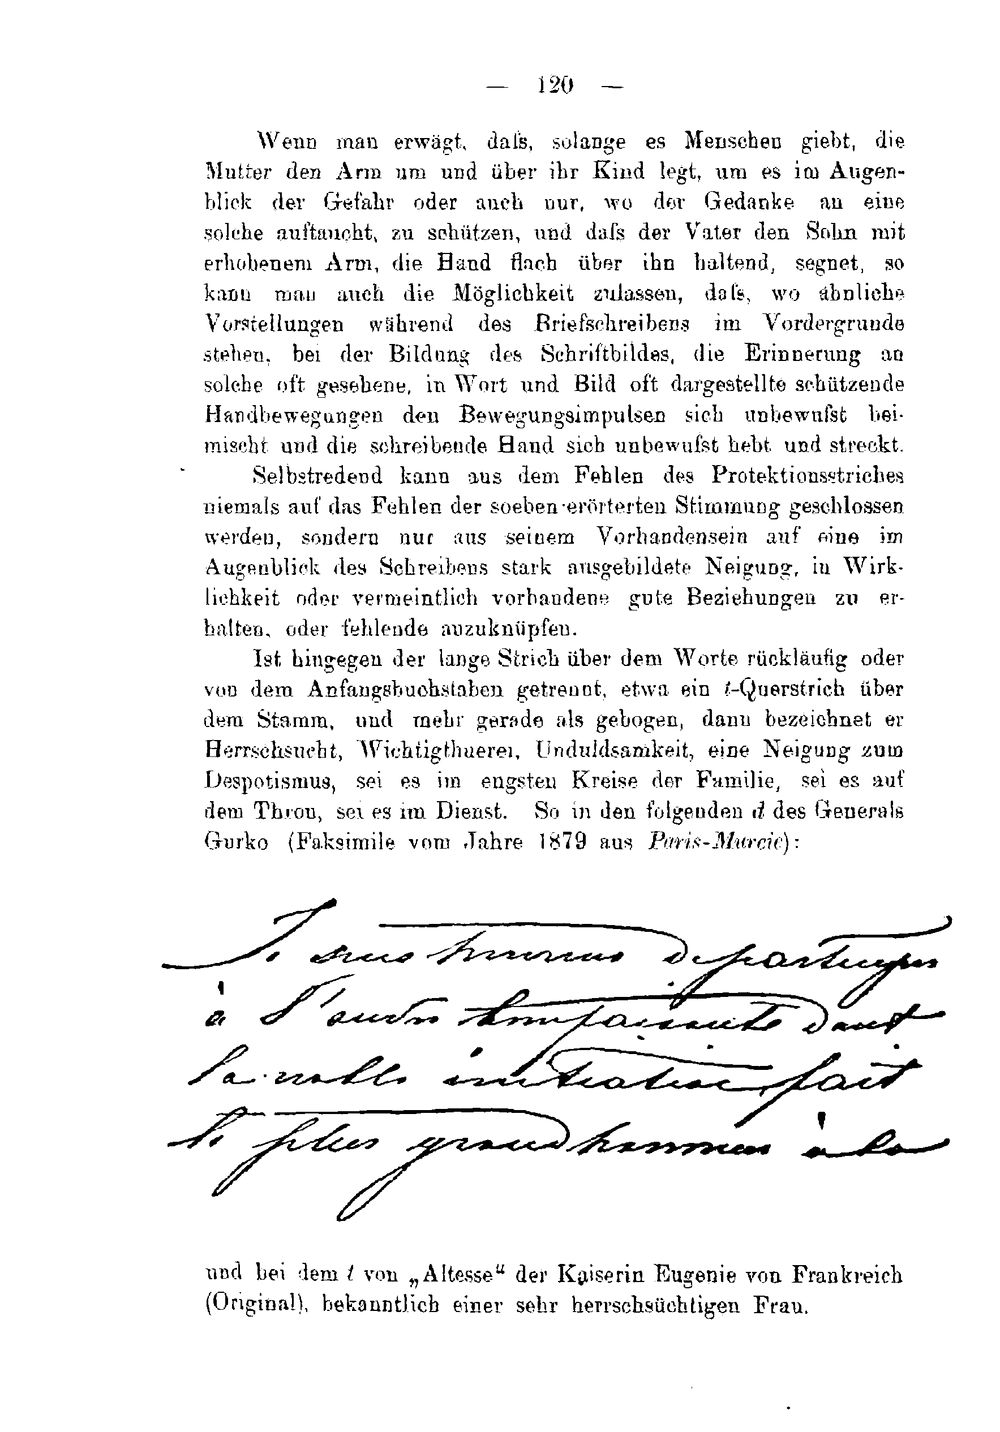 — 120 —
Wenn man erwägt, daſs, solange es Menschen giebt, die
Mutter den Arm um und über ihr Kind legt, um es im Augen-
blick der Gefahr oder auch nur, wo der Gedanke an eine
solche auftaucht, zu schützen, und daſs der Vater den Sohn mit
erhobenem Arm, die Hand flach über ihn haltend, segnet, so
kann man auch die Möglichkeit zulassen, daſs, wo ähnliche
Vorstellungen während des Briefschreibens im Vordergrunde
stehen, bei der Bildung des Schriftbildes, die Erinnerung an
solche oft gesehene, in Wort und Bild oft dargestellte schützende
Handbewegungen den Bewegungsimpulsen sich unbewuſst bei-
mischt und die schreibende Hand sich unbewuſst hebt und streckt.
Selbstredend kann aus dem Fehlen des Protektionsstriches
niemals auf das Fehlen der soeben erörterten Stimmung geschlossen
werden, sondern nur aus seinem Vorhandensein auf eine im
Augenblick des Schreibens stark ausgebildete Neigung, in Wirk-
lichkeit oder vermeintlich vorhandene gute Beziehungen zu er-
halten, oder fehlende anzuknüpfen.
Ist hingegen der lange Strich über dem Worte rückläufig oder
von dem Anfangsbuchstaben getrennt, etwa ein t-Querstrich über
dem Stamm, und mehr gerade als gebogen, dann bezeichnet er
Herrschsucht, Wichtigthuerei, Unduldsamkeit, eine Neigung zum
Despotismus, sei es im engsten Kreise der Familie, sei es auf
dem Thron, sei es im Dienst. So in den folgenden d des Generals
Gurko (Faksimile vom Jahre 1879 aus Paris-Murcie):
Je suis heureux de participer
à l'œuvre bienfaisante dont
la noble initiative fait
le plus grand honneur à la
und bei dem t von „Altesse“ der Kaiserin Eugenie von Frankreich
(Original), bekanntlich einer sehr herrschsüchtigen Frau.